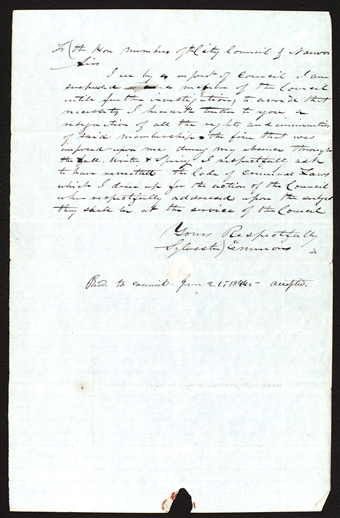 To the Hon member of the City Council of Nauvoo
Sirs
I see by a report of Council I am
suspended as a member of the Council
until further investigation, to avoid that
necessity I herewith tender to you a
resignation of all the rights and immunities
of said membership. The fine that was
imposed upon me during my absence through
the fall Winter & Spring I respectfully ask
to have remitted. The Code of Criminal Laws
which I drew up for the action of the Council
when respectfully addressed upon the subject
they shall be at the service of the Council
Yours Respectfully
Sylvester Emmons
Read to council June 21, 1844 - accepted.